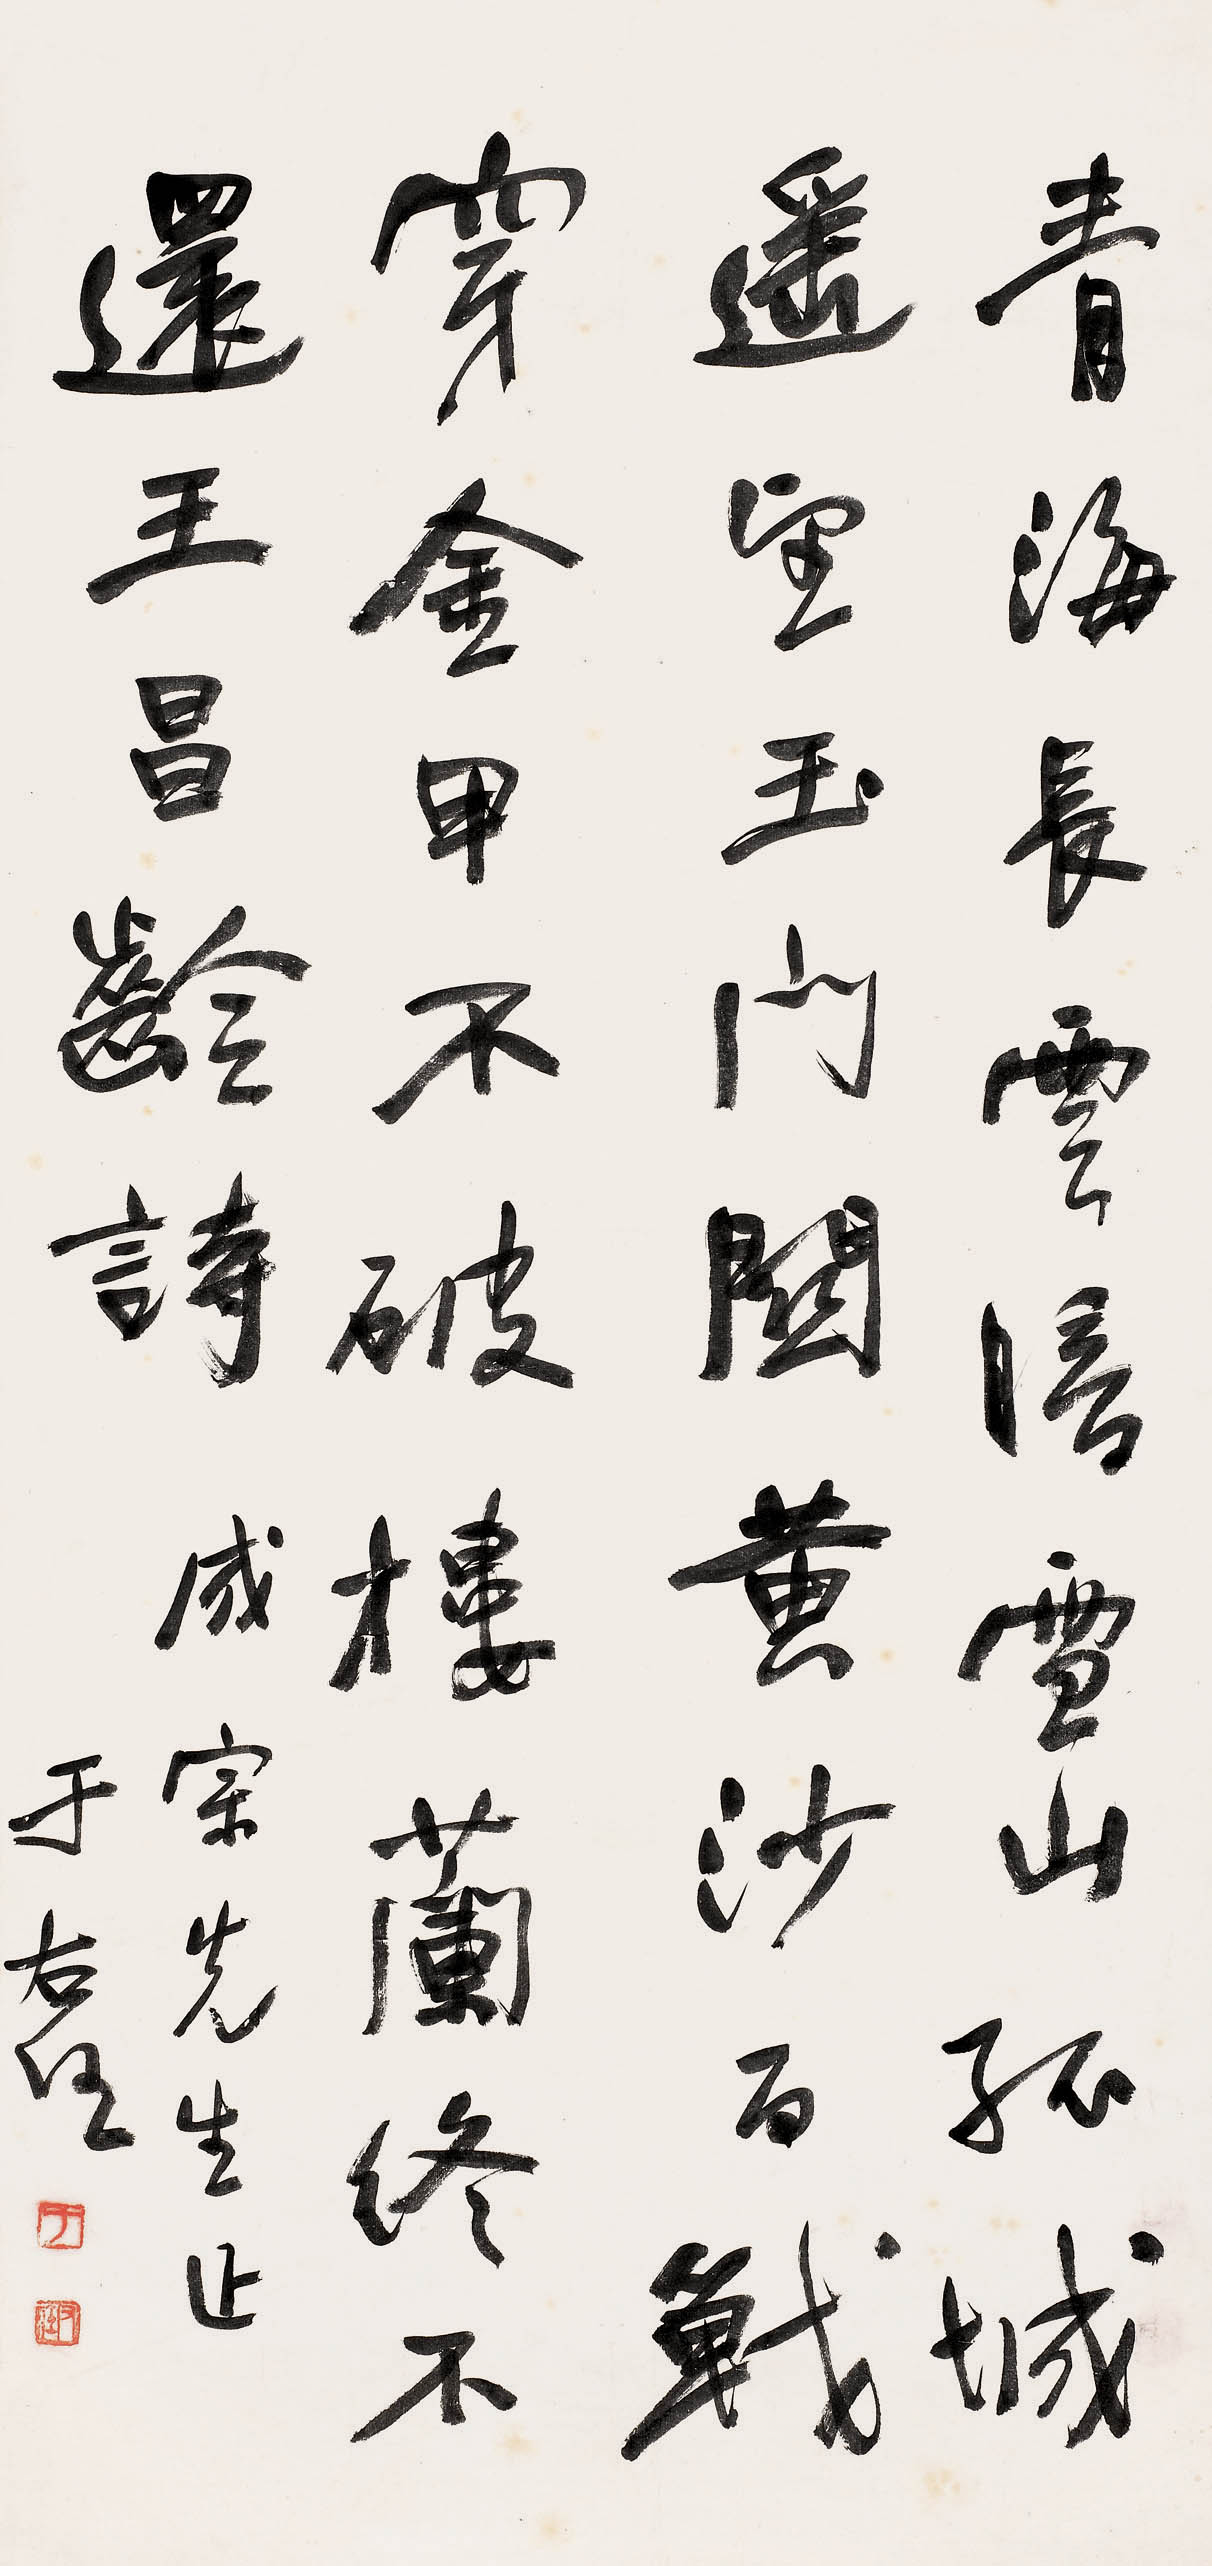 青海長雲暗雪山孤城
遥望玉門關黄沙百戰
穿金甲不破樓蘭終不
還王昌齡詩
成宗先生正
于右任